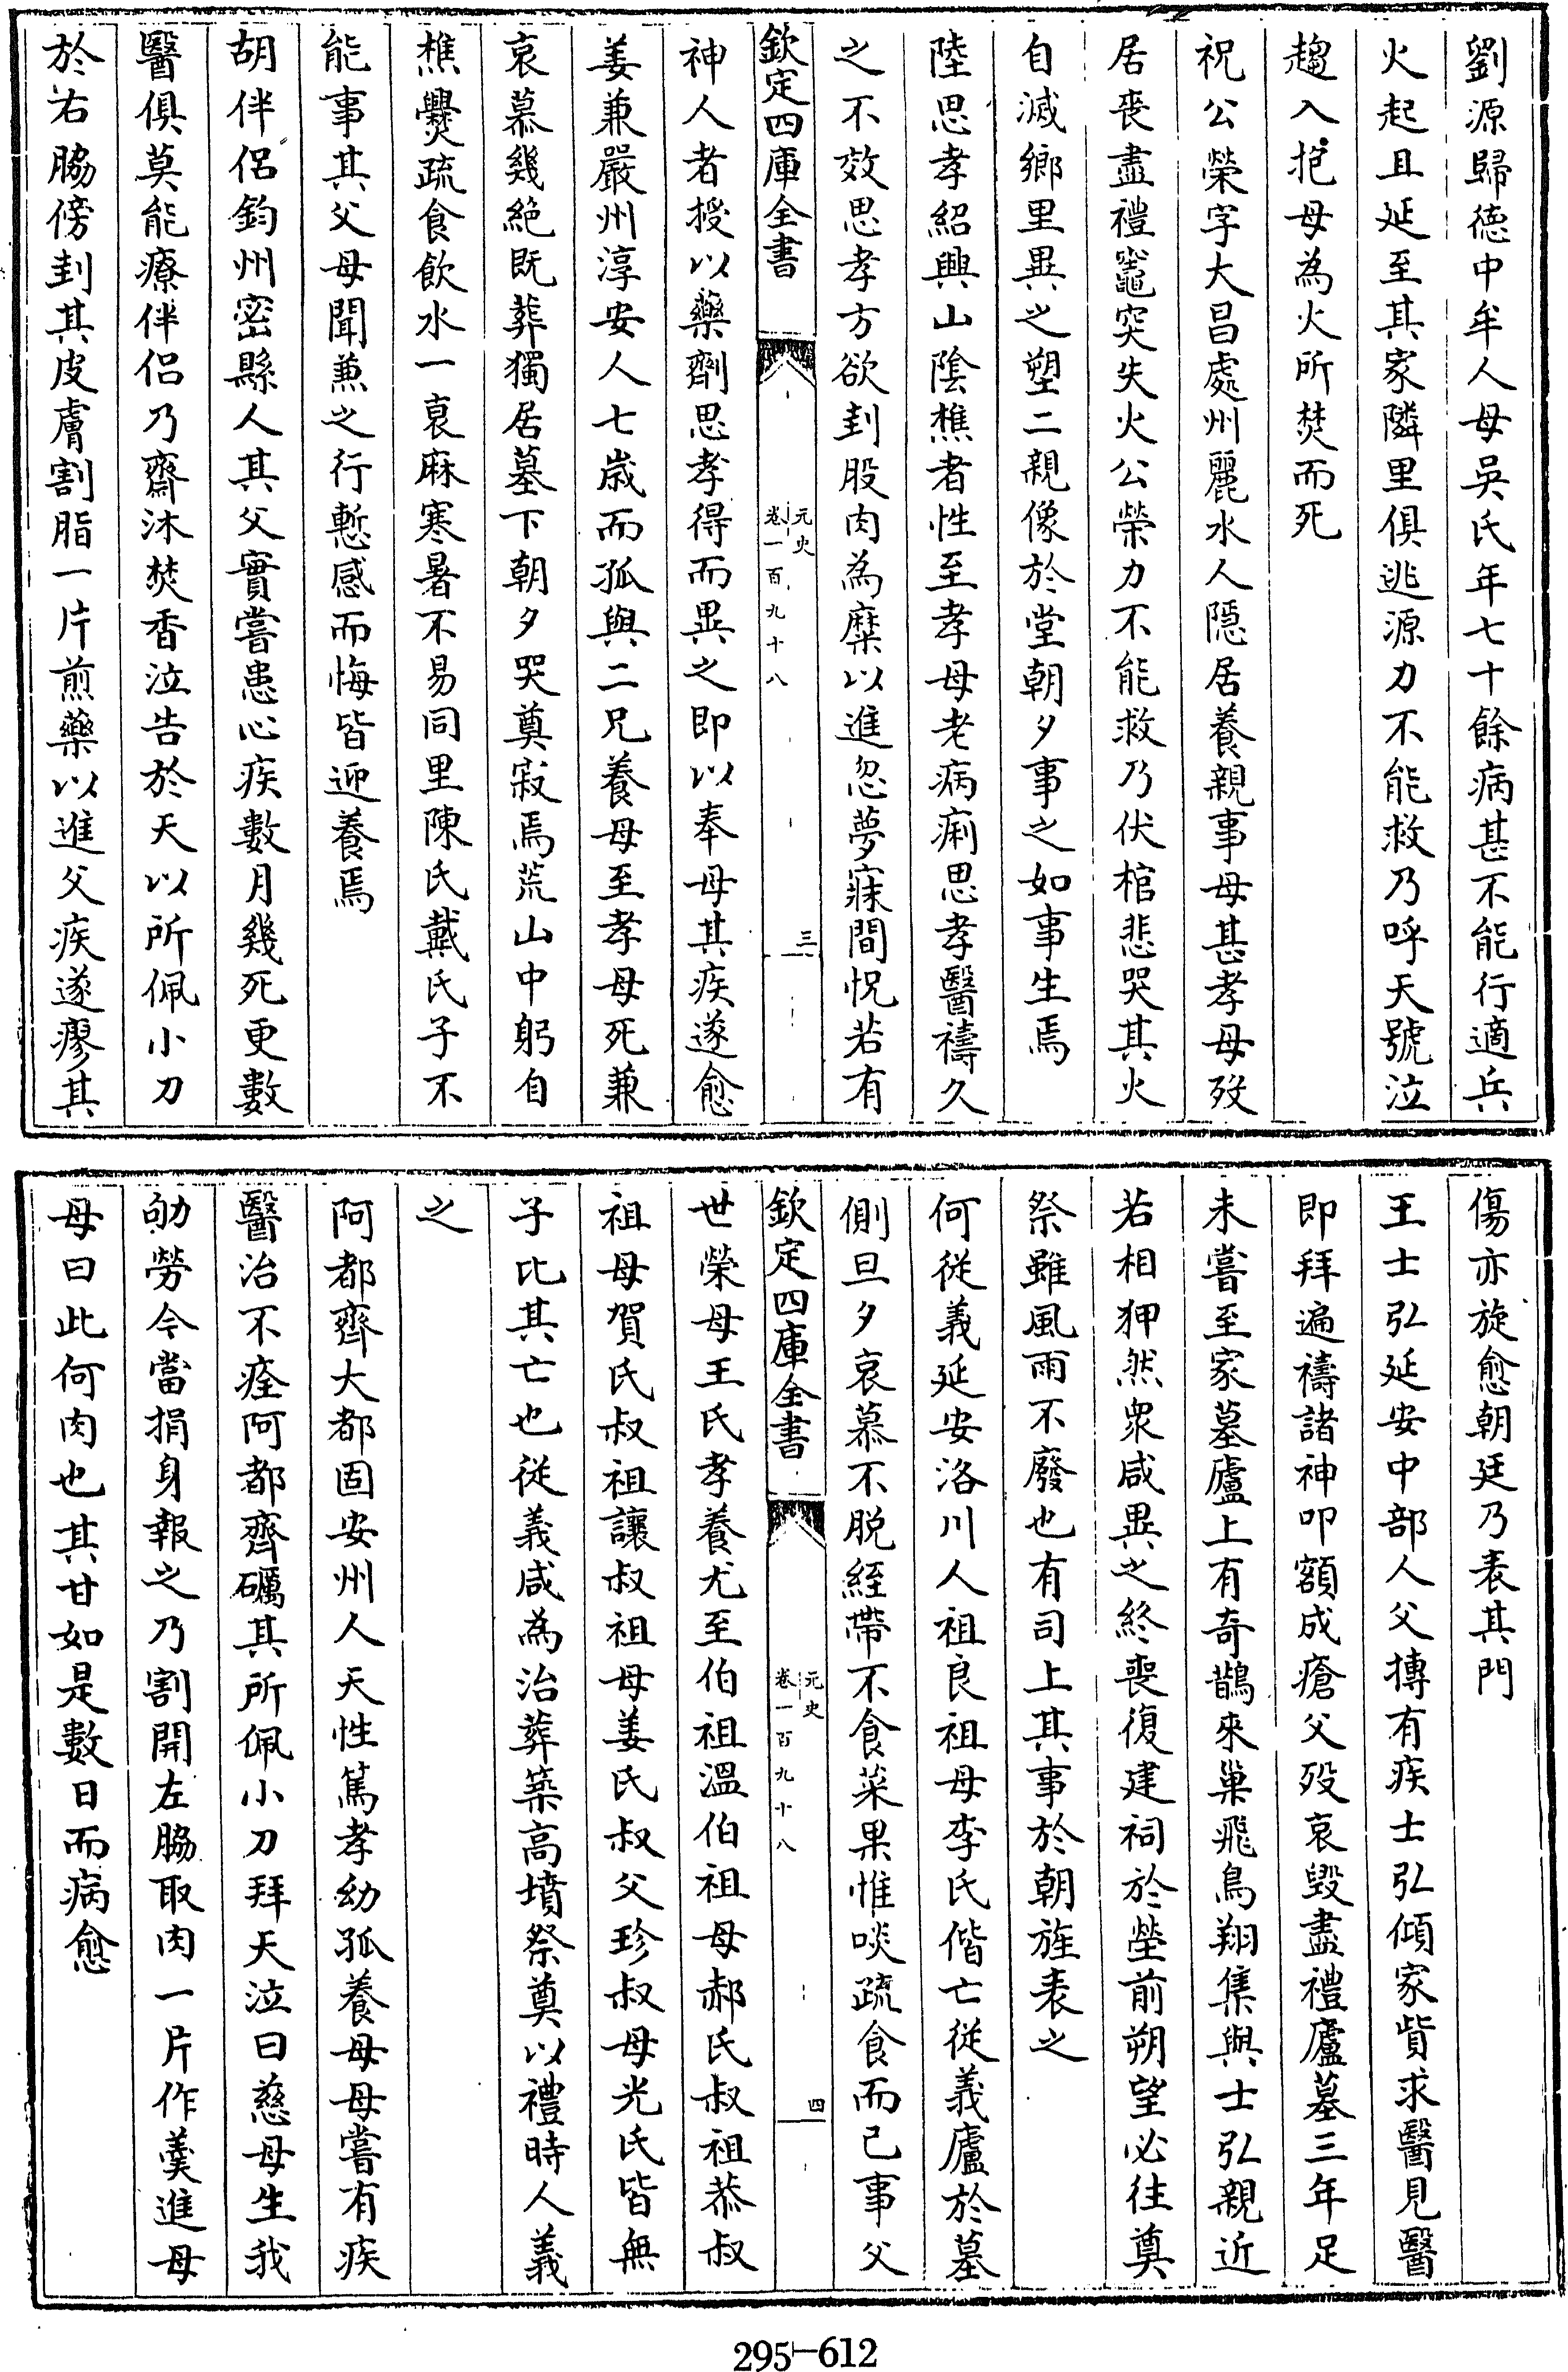 劉源歸德中牟人母吳氏年七十餘病甚不能行適兵
火起且延至其家隣里俱逃源力不能救乃呼天號泣
趨入抱母為火所焚而死
祝公榮字大昌處州麗水人隱居養親事母甚孝母歿
居喪盡禮竈突失火公榮力不能救乃伏棺悲哭其火
自滅鄉里異之塑二親像於堂朝夕事之如事生焉
陸思孝紹興山陰樵者性至孝母老病痢思孝醫禱久
之不效思孝方欲刲股肉為糜以進忽夢寐間怳若有
欽定四庫全書
元史
卷一百九十八
三
神人者授以藥劑思孝得而異之即以奉母其疾遂愈
姜兼嚴州淳安人七歲而孤與二兄養母至孝母死兼
哀慕幾絶既葬獨居墓下朝夕哭奠寂焉荒山中躬自
樵爨疏食飲水一衰麻寒暑不易同里陳氏戴氏子不
能事其父母聞兼之行慙感而悔皆迎養焉
胡伴侶鈞州密縣人其父實嘗患心疾數月幾死更數
醫俱莫能療伴侶乃齋沐焚香泣告於天以所佩小刀
於右脇傍刲其皮膚割脂一片煎藥以進父疾遂瘳其
傷亦旋愈朝廷乃表其門
王士弘延安中部人父摶有疾士弘傾家貲求醫見醫
即拜遍禱諸神叩額成瘡父歿哀毀盡禮廬墓三年足
未嘗至家墓廬上有奇鵲來巢飛鳥翔集與士弘親近
若相狎然衆咸異之終喪復建祠於塋前朔望必往奠
祭雖風雨不廢也有司上其事於朝旌表之
何從義延安洛川人祖良祖母李氏偕亡從義廬於墓
側旦夕哀慕不脫絰帶不食菜果惟啖疏食而已事父
欽定四庫全書
元史
卷一百九十八
四
世榮母王氏孝養尤至伯祖溫伯祖母郝氏叔祖恭叔
祖母賀氏叔祖讓叔祖母姜氏叔父珍叔母光氏皆無
子比其亡也從義咸為治葬築高墳祭奠以禮時人義
之
阿都齊大都固安州人天性篤孝幼孤養母母嘗有疾
醫治不痊阿都齊礪其所佩小刀拜天泣曰慈母生我
劬勞今當捐身報之乃割開左脇取肉一片作羹進母
母曰此何肉也其甘如是數日而病愈
295-612